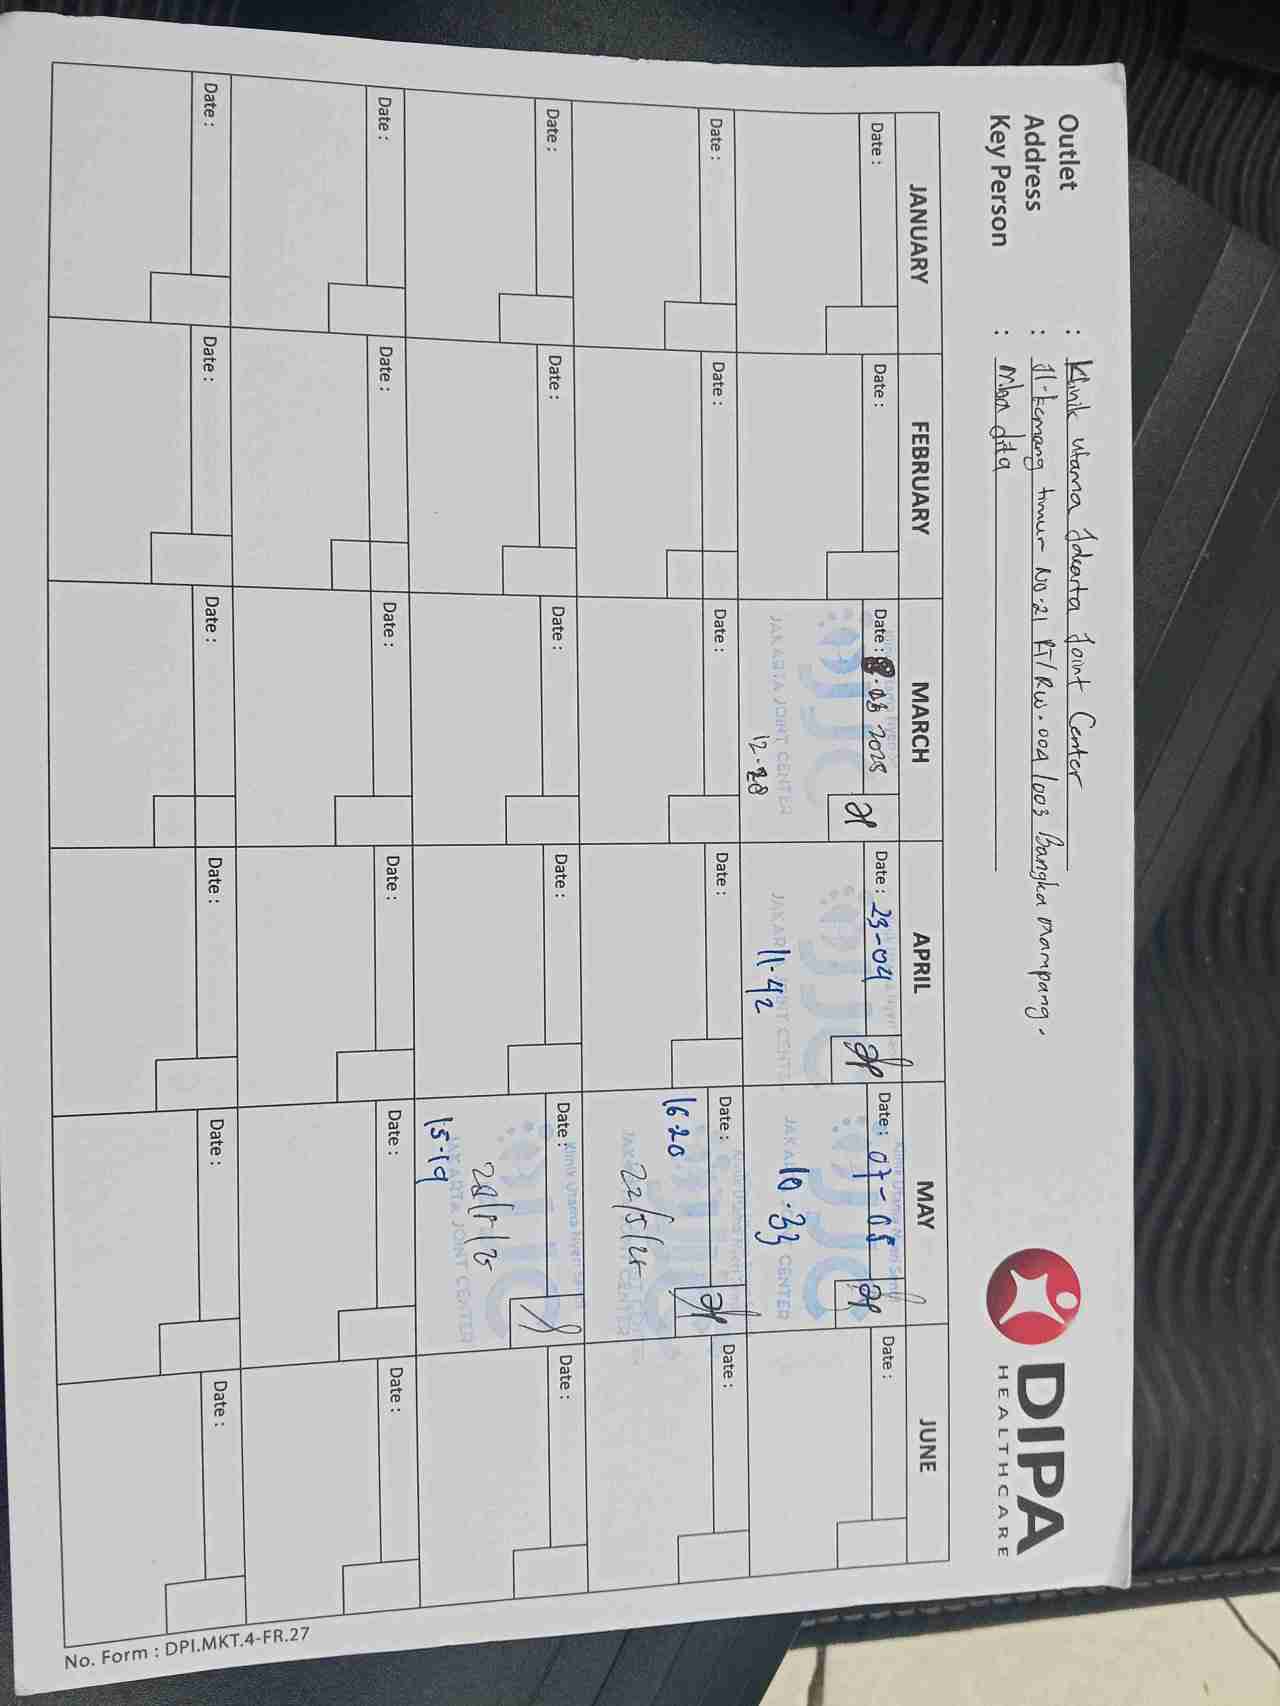 Outlet : Klinik Utama Jakarta Joint Center
Address : Jl. Kemang timur No.21 RT/RW.004/003 Bangka Mampang.
Key Person : Mba dita
DIPA
HEALTHCARE
JANUARY FEBRUARY MARCH APRIL MAY JUNE
Date : Date : Date : .03 2025 Date : 23-04 Date : 07-05 Date :
JJC JJC JJC
JAKARTA JOINT CENTER JAKARTA JOINT CENTER JAKARTA CENTER
12.28 11-42 10.33
Date : Date : Date : Date : Date : Date :
16-20
22/5/25
Date : Date : Date : Date : Date : Date :
Klinik Utama Nyeri Sendi
JJC
28/5/25
JAKARTA JOINT CENTER
15-19
Date : Date : Date : Date : Date : Date :
Date : Date : Date : Date : Date : Date :
No. Form : DPI.MKT.4-FR.27